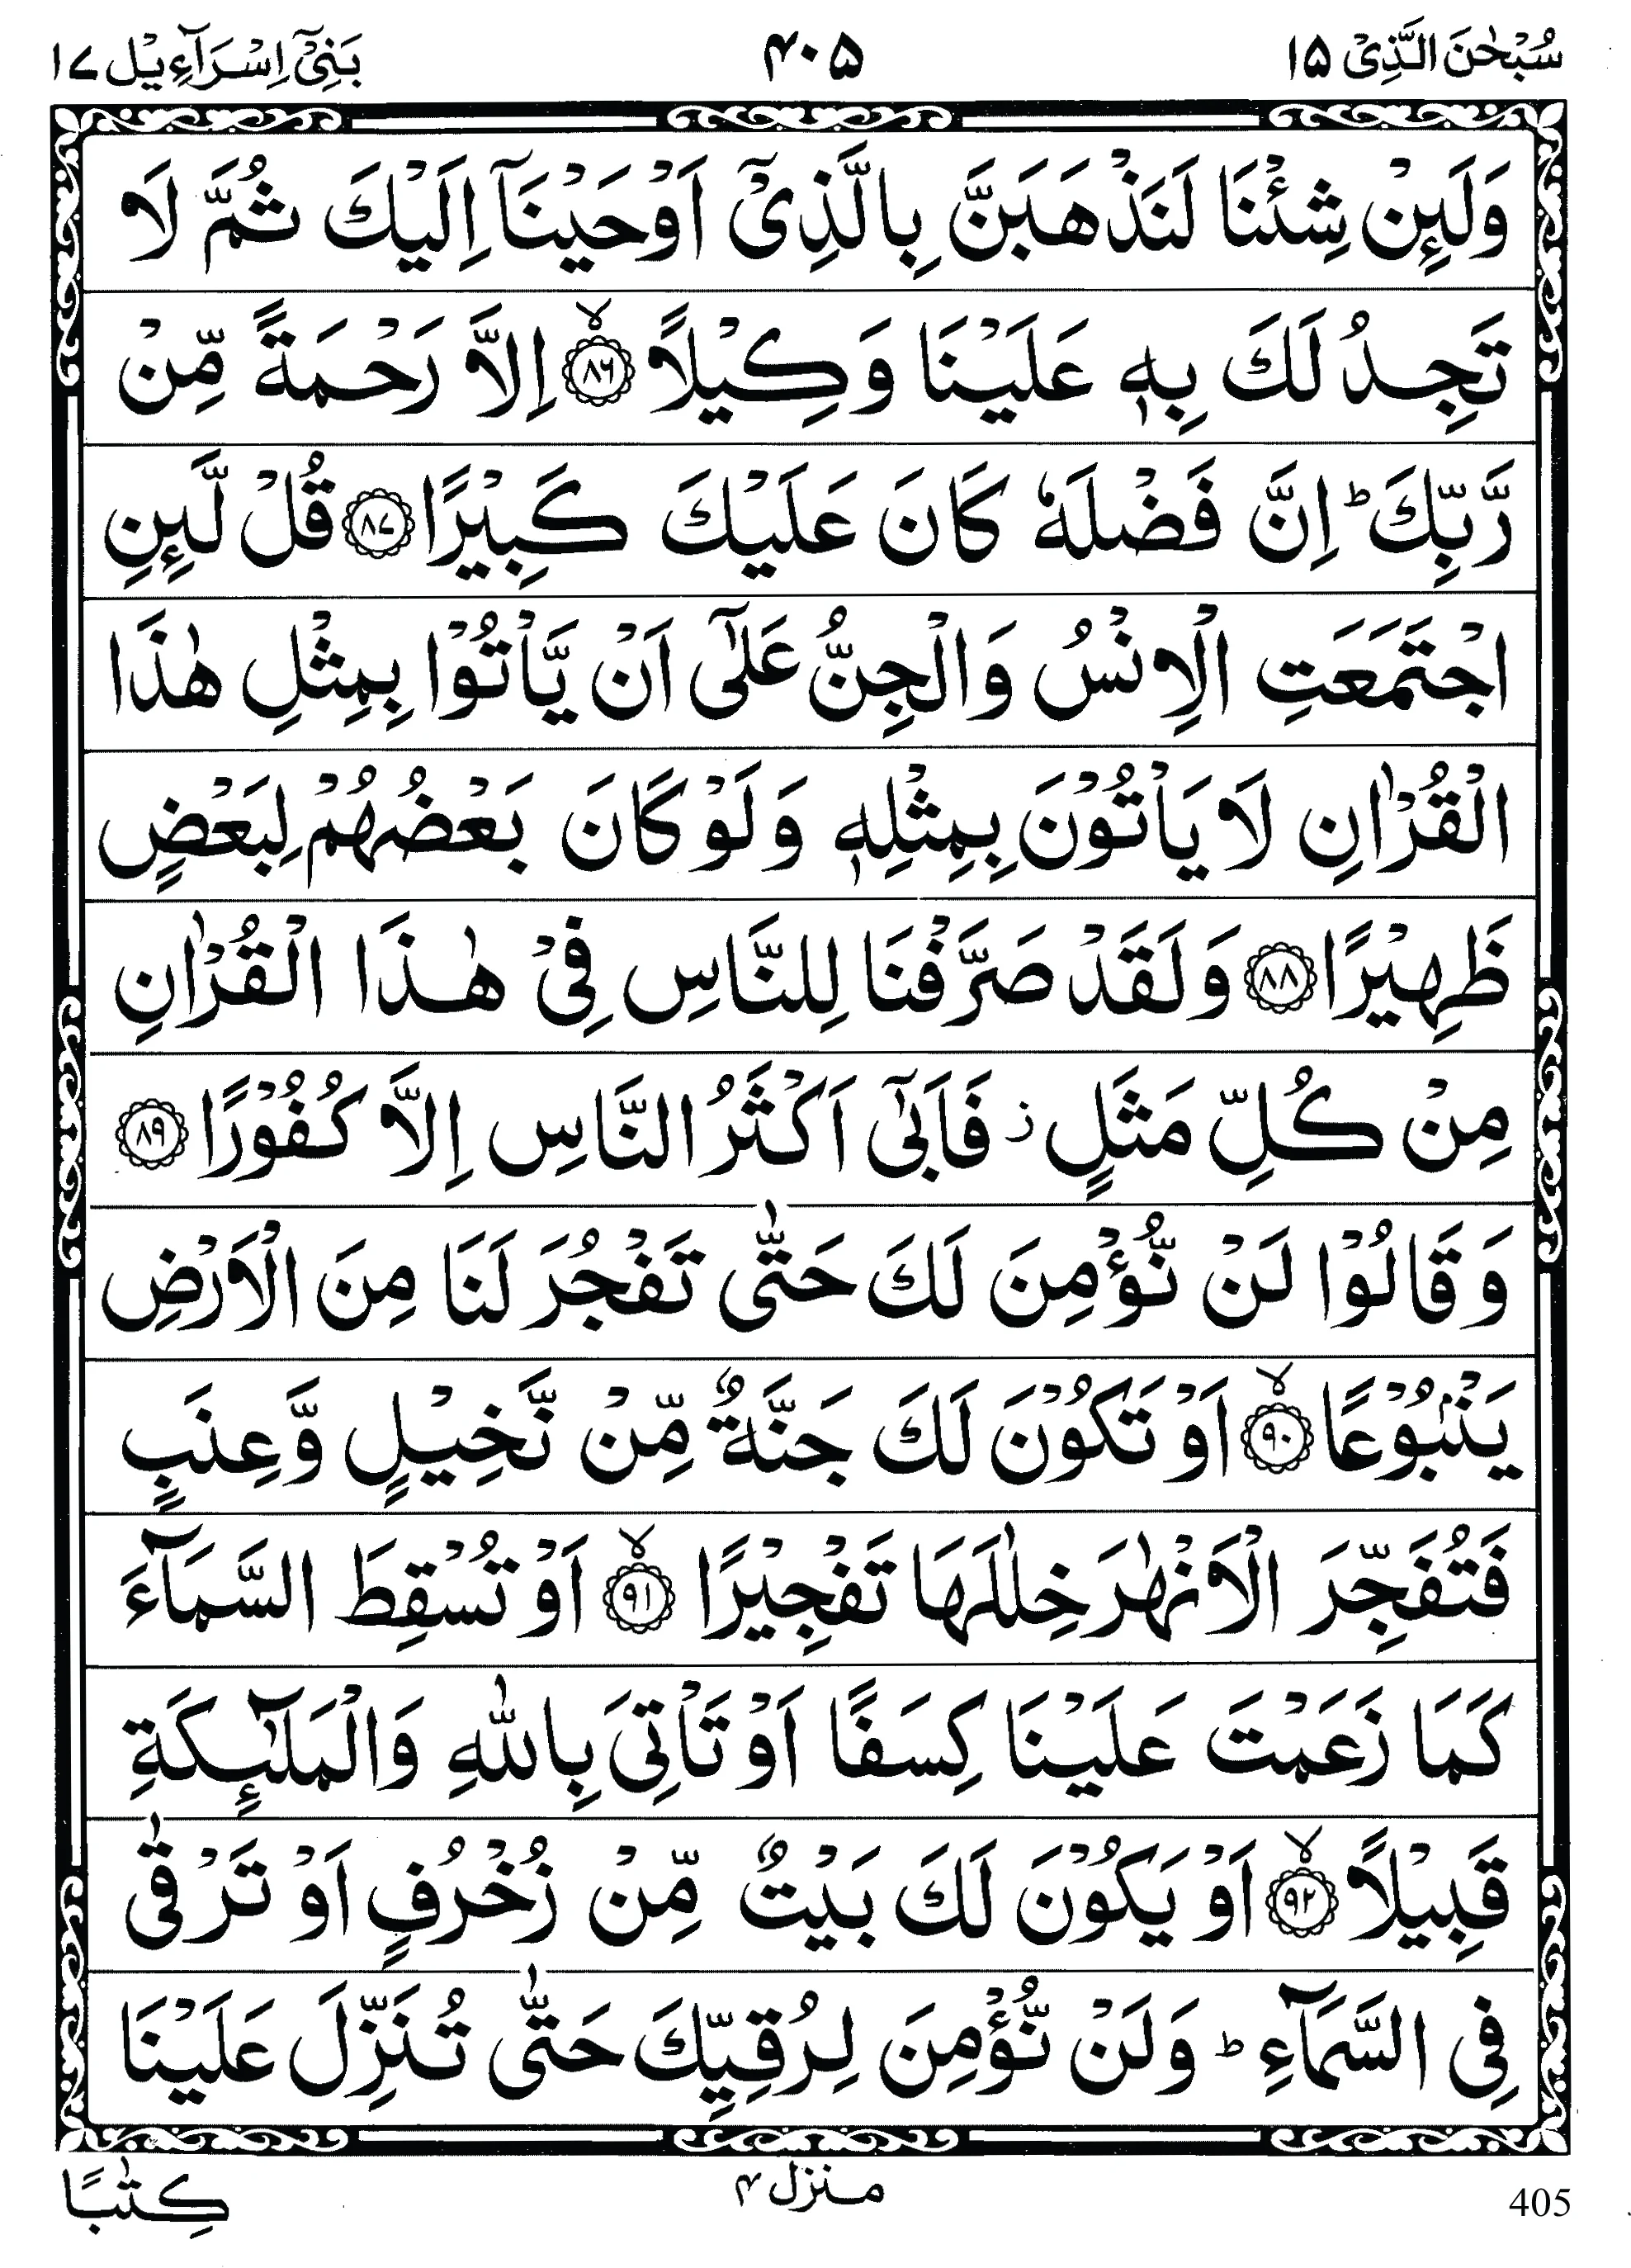 سُبْحٰنَ الَّذِیْ ۱۵
۴۰۵
بَنِیْۤ اِسْرَآءِیْل ۱۷
وَلَىِٕنْ شِئْنَا لَنَذْهَبَنَّ بِالَّذِیْۤ اَوْحَیْنَاۤ اِلَیْكَ ثُمَّ لَا
تَجِدُ لَكَ بِهٖ عَلَیْنَا وَكِیْلًا ﴿ۙ۸۶﴾ اِلَّا رَحْمَةً مِّنْ
رَّبِّكَ ؕ اِنَّ فَضْلَهٗ كَانَ عَلَیْكَ كَبِیْرًا ﴿۸۷﴾ قُلْ لَّىِٕنِ
اجْتَمَعَتِ الْاِنْسُ وَالْجِنُّ عَلٰۤی اَنْ یَّاْتُوْا بِمِثْلِ هٰذَا
الْقُرْاٰنِ لَا یَاْتُوْنَ بِمِثْلِهٖ وَلَوْ كَانَ بَعْضُهُمْ لِبَعْضٍ
ظَهِیْرًا ﴿۸۸﴾ وَلَقَدْ صَرَّفْنَا لِلنَّاسِ فِیْ هٰذَا الْقُرْاٰنِ
مِنْ كُلِّ مَثَلٍ ؗ فَاَبٰۤی اَكْثَرُ النَّاسِ اِلَّا كُفُوْرًا ﴿۸۹﴾
وَقَالُوْا لَنْ نُّؤْمِنَ لَكَ حَتّٰی تَفْجُرَ لَنَا مِنَ الْاَرْضِ
یَنْۢبُوْعًا ﴿ۙ۹۰﴾ اَوْ تَكُوْنَ لَكَ جَنَّةٌ مِّنْ نَّخِیْلٍ وَّعِنَبٍ
فَتُفَجِّرَ الْاَنْهٰرَ خِلٰلَهَا تَفْجِیْرًا ﴿ۙ۹۱﴾ اَوْ تُسْقِطَ السَّمَآءَ
كَمَا زَعَمْتَ عَلَیْنَا كِسَفًا اَوْ تَاْتِیَ بِاللّٰهِ وَالْمَلٰٓىِٕكَةِ
قَبِیْلًا ﴿ۙ۹۲﴾ اَوْ یَكُوْنَ لَكَ بَیْتٌ مِّنْ زُخْرُفٍ اَوْ تَرْقٰی
فِی السَّمَآءِ ؕ وَلَنْ نُّؤْمِنَ لِرُقِیِّكَ حَتّٰی تُنَزِّلَ عَلَیْنَا
كِتٰبًا
منزل ۴
405